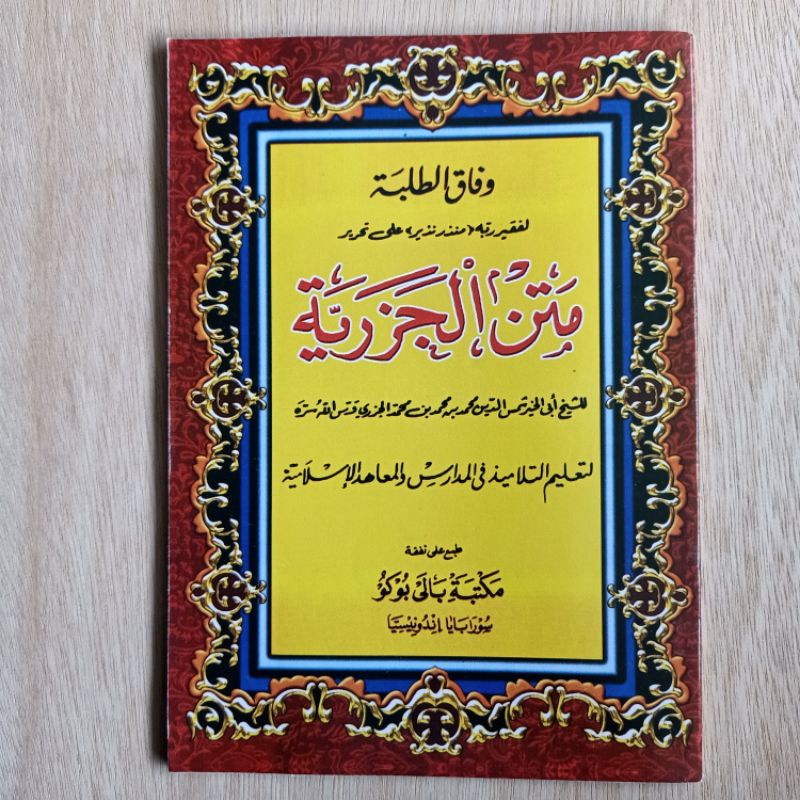 وفاق الطلبة
لفقير ربه «منذر نذير» على تحرير
مَتْنُ الْجَزَرِيَّة
للشيخ أبى الخير شمس الدين محمد بن محمد بن محمد الجزري قدس الله سره
لتعليم التلاميذ فى المدارس والمعاهد الإسلامية
طبع على نفقة
مكتبة بالَى بُوكُو
سُورَابَايَا إِنْدُونِيْسِيَّا